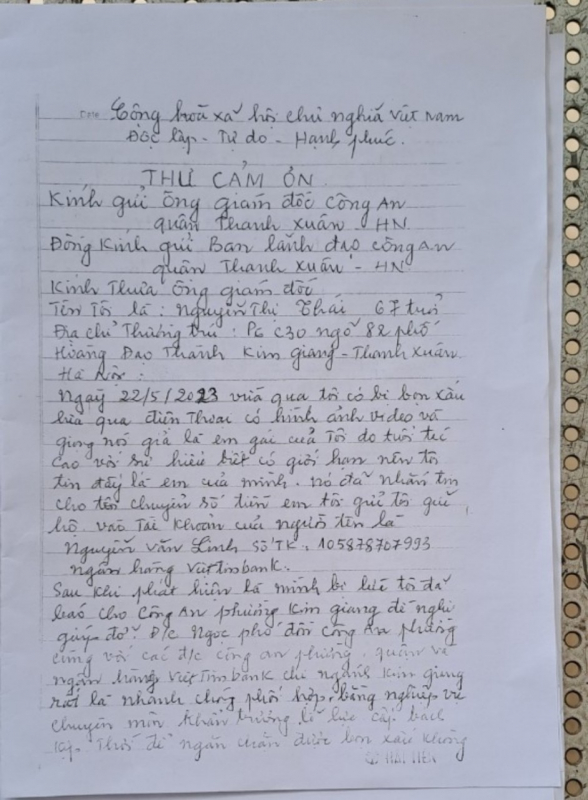 Cộng hoà xã hội chủ nghĩa Việt Nam
Độc lập - Tự do - Hạnh phúc.
THƯ CẢM ƠN
Kính gửi Ông giám đốc Công An
quận Thanh Xuân - HN
Đồng Kính gửi Ban lãnh đạo công An
quận Thanh Xuân - HN
Kính Thưa Ông giám đốc
Tên Tôi là : Nguyễn Thị Thái 67 tuổi
Địa chỉ Thường trú : P6 C30 ngõ 82 phố
Hoàng Đạo Thành Kim Giang - Thanh Xuân
Hà Nội :
Ngày 22/5/2023 vừa qua tôi có bị bọn xấu
lừa qua điện Thoại có hình ảnh video và
giọng nói giả là em gái của Tôi do tuổi tác
cao với sự hiểu biết có giới hạn nên tôi
tin đấy là em của mình. nó đã nhắn tin
cho tôi chuyển số tiền em tôi gửi tôi giữ
hộ vào Tài Khoản của người tên là
Nguyễn Văn Linh Số TK: 105878707993
ngân hàng Viettinbank.
Sau khi phát hiện là mình bị lừa tôi đã
báo cho Công An phường Kim giang đề nghị
giúp đỡ Đ/c Ngọc phó đồn Công An phường
cùng với các đ/c công an phường, quận và
ngân hàng Viettinbank chi ngánh Kim giang
rất là nhanh chóng phối hợp bằng nghiệp vụ
chuyên môn Khẩn trương
kịp Thời để ngăn chặn được bọn xấu không